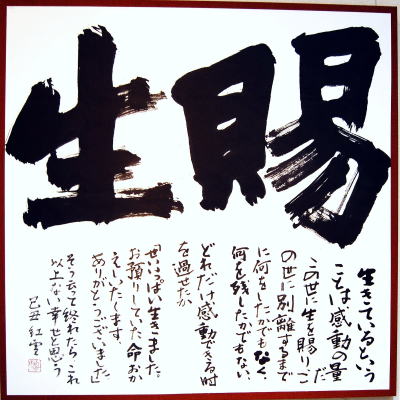 賜生
生きているという
ことは感動の量だ
この世に生を賜りこ
の世に別離するまで
に何をしたかでもなく、
何を残したかでもない、
どれだけ感動できる時
を過せたか
「せいいっぱい生きました。
お預りしていた命おか
えしいたします。
ありがとうございました」
そう云って終れたら、これ
以上ない幸せと思う
己丑 紅雲